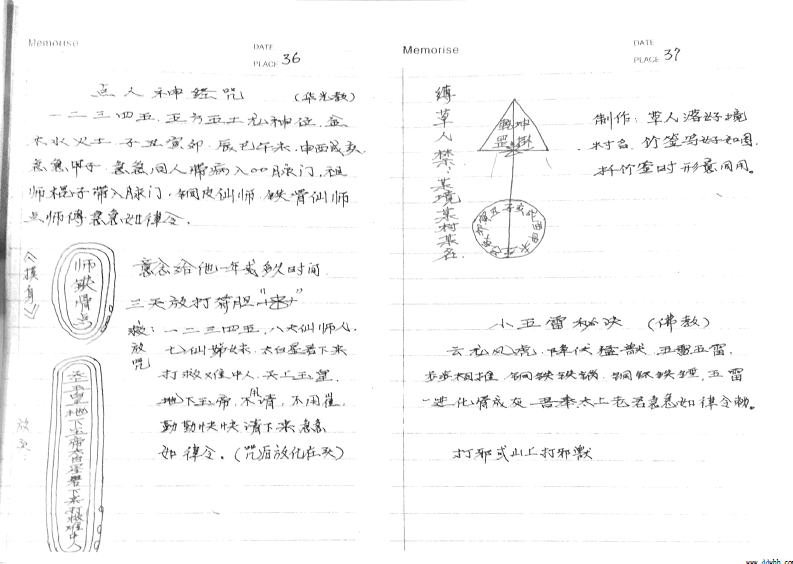 Memorise
DATE
PLACE 36
点人神经咒 (华光教)
一二三四五,五方五土龙神位,金
木水火土,子丑寅卯,辰巳午未,申酉戌亥,
急急甲子 急急同人带病入〇〇月脉门,祖
师棍子带入脉门,铜皮仙师,铁骨仙师
点师傅急急如律令.
《摸身》
师
铁
骨
意念给他一年或多久时间
三天放打荷胆
救:一二三四五,八大仙师人,
放 七仙姊妹,太白星君下来
咒 打救难中人,天上玉皇,
地下玉帝,不用请,不用催
勤勤快快请下来急急
如律令.(咒后放化在天)
天上玉皇地下玉帝太白星君下来打救难中人
Memorise
DATE
PLACE 37
缚草人禁:某境某村某名.
制作:草人落好境
村名,竹签写好如图,
扦竹签时形意同用。
小五雷秘诀 (佛教)
云龙风虎,降伏猛兽,五雷五雷,
步步相推,铜铁铁锅,铜铁铁,五雷
一进化骨成灰 太上老君急急如律令勅。
打邪或山上打邪兽